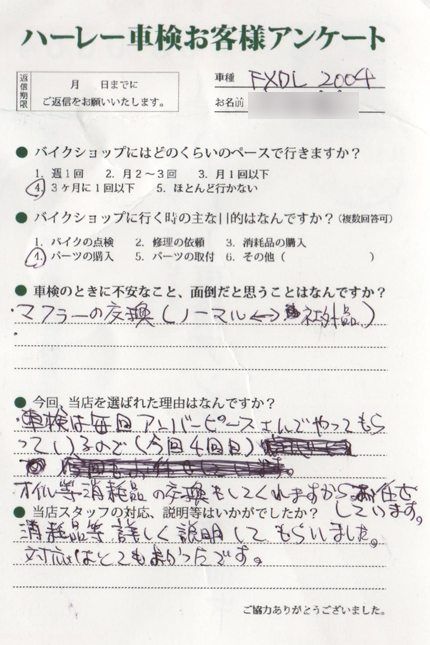 ハーレー車検お客様アンケート
返信期限
月 日までに
ご返信をお願いいたします。
車種 FXDL 2004
お名前
● バイクショップにはどのくらいのペースで行きますか?
1. 週1回 2. 月2〜3回 3. 月1回以下
4. 3ヶ月に1回以下 5. ほとんど行かない
● バイクショップに行く時の主な目的はなんですか?(複数回答可)
1. バイクの点検 2. 修理の依頼 3. 消耗品の購入
4. パーツの購入 5. パーツの取付 6. その他( )
● 車検のときに不安なこと、面倒だと思うことはなんですか?
・マフラーの交換(ノーマル⟷社外品)
● 今回、当店を選ばれた理由はなんですか?
・車検は毎回アンバーピースさんでやってもら
っているので(今回4回目)
オイル等消耗品の交換もしてくれますからお任せ
しています。
● 当店スタッフの対応、説明等はいかがでしたか?
消耗品等詳しく説明してもらいました。
対応はとてもよかったです。
ご協力ありがとうございました。